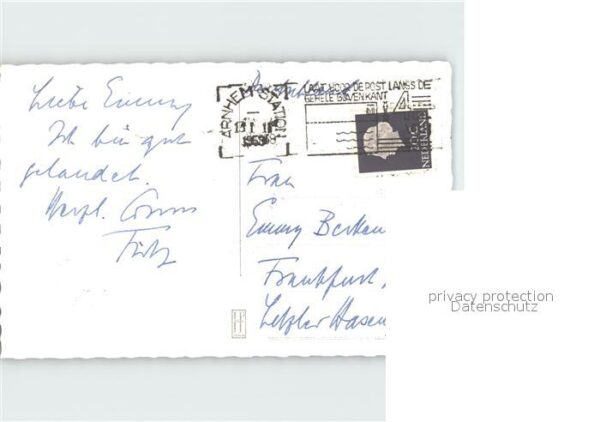 Liebe Emmy
Ich bin gut
gelandet.
Herzl. Gruss
Fritz
ARNHEM-STATION
1963
LAAT VOOR DE POST LANGS DE
GEHELE BOVENKANT
NEDERLAND
Frau
Emmy Becker
Frankfurt,
Letzter Hasen
privacy protection
Datenschutz